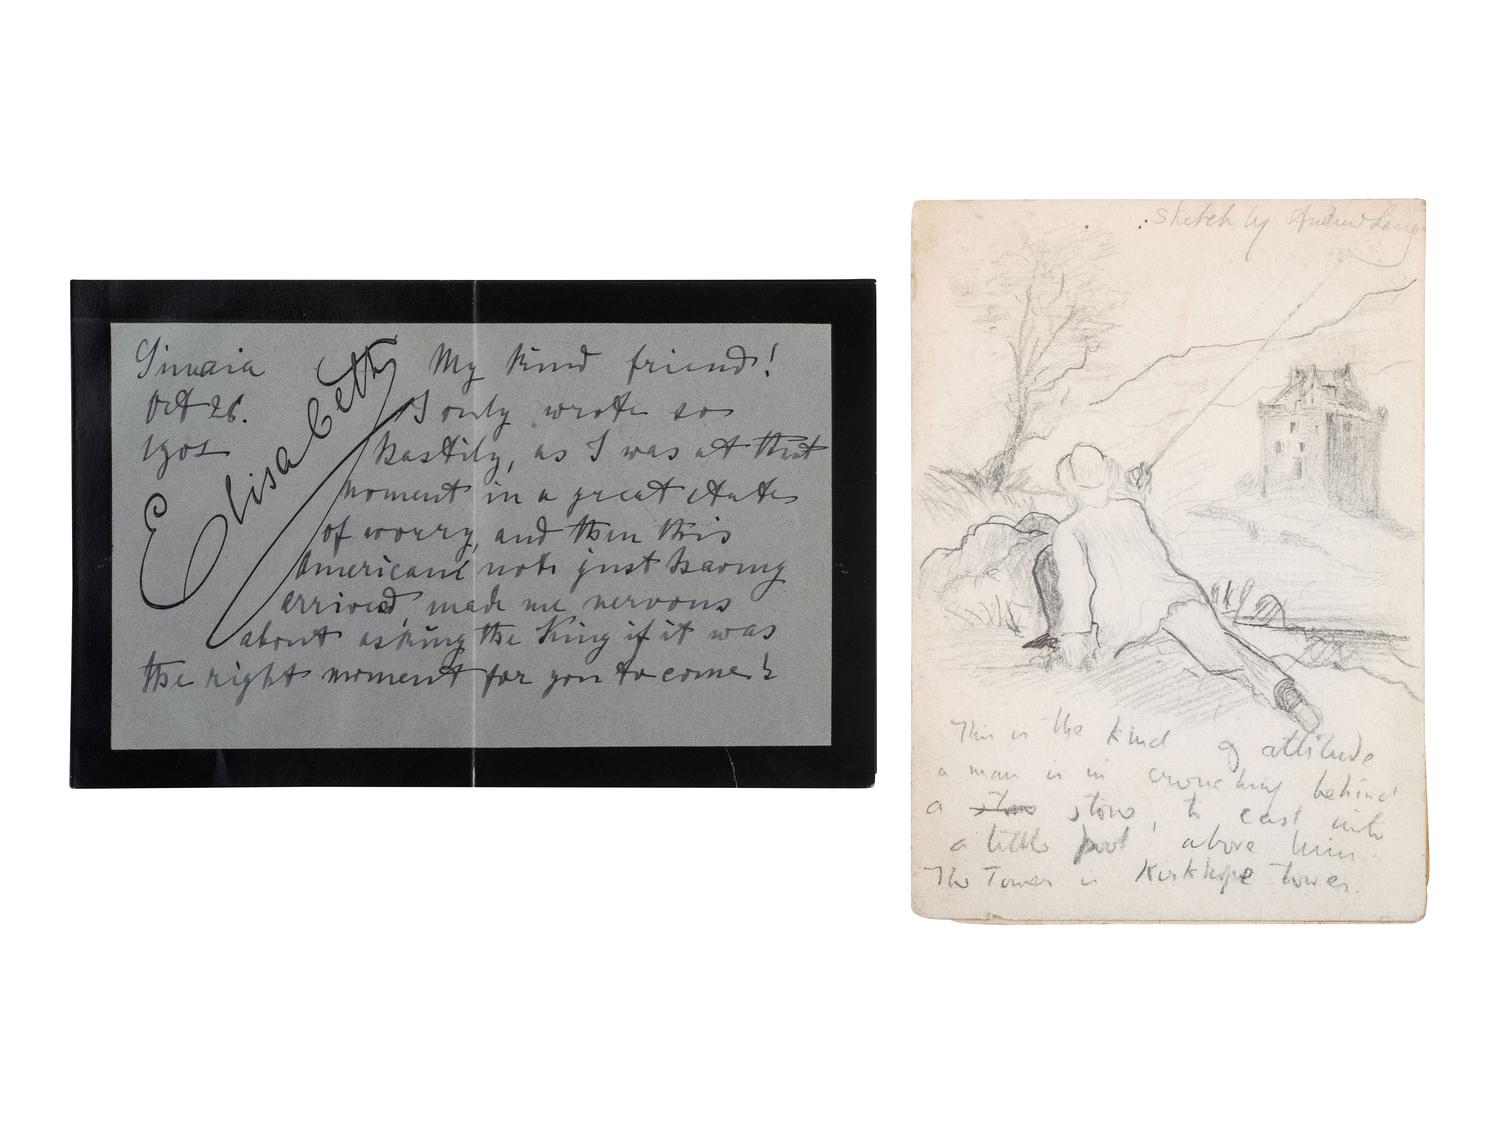 Sinaia
Oct 26.
Elisabeth
My kind friend!
I only wrote so
hastily, as I was at that
moment in a great state
of worry, and then this
American note just having
arrived made me nervous
about asking the King if it was
the right moment for you to come!
Sketch by Andrew Lang
This is the kind of attitude
a man is in crouching behind
a stone, to cast into
a little pool above him.
The Tower is Kirkhope tower.